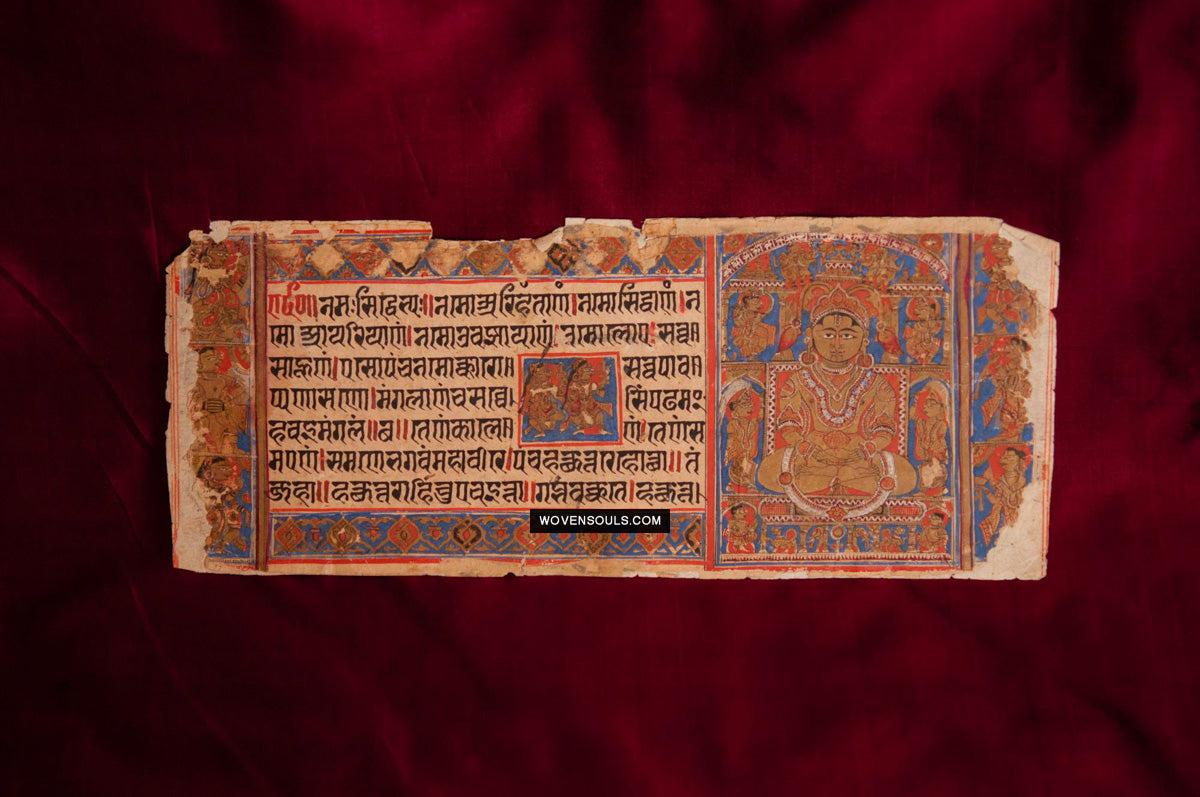 नमः सिद्धेभ्यः॥ नमो अरिहंताणं। नमो सिद्धाणं। न
मो आयरियाणं। नमो उवज्झायाणं। नमो लोए सव्व
साहूणं। एसो पंच नमोक्कारो। सव्वपाव
प्पणासणो। मंगलाणं च सव्वे सिं पढमं
हवइ मंगलं॥ छ॥ तेणं काले णं। तेणं स
मएणं। समणे भगवं महावीरे। पंचहत्थुत्तरे होत्था॥ तं
जहा॥ हत्थुत्तराहिं चुए चइत्ता॥ गब्भं वक्कंते। हत्थुत्त
WOVENSOULS.COM